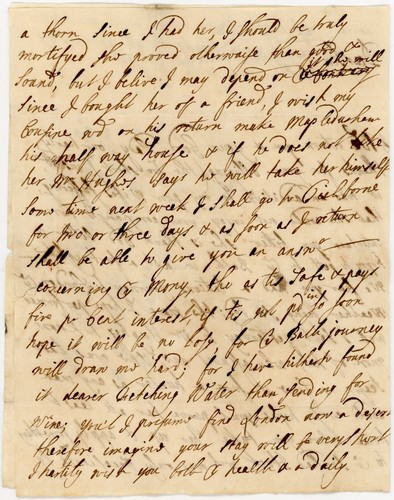 a thorn since I had her, I should be truly
mortifyed she proved otherwaise than good &
sound, but I belive I may depend on it she will
since I bought her of a friend, I wish my
Cousine wd on his return make Mapledurham
his half way house & if he does not like
her Mr Hughes says he will take her himself
some time next week I shall go to
for two or three days & as soon as I return
shall be able to give you an answr
concerning ye Mony, tho as tis safe & pays
five pr Cent interest, if tis not pd in, soon
hope it will be no loss, for ye Bath journey
will drawn me hard; for I have hitherto found
it dearer fetching Water than sending for
Wine; you'l I presume find London now a desert
therefore imagine your stay will be very short
I hartily wish you both ye health & a daily.